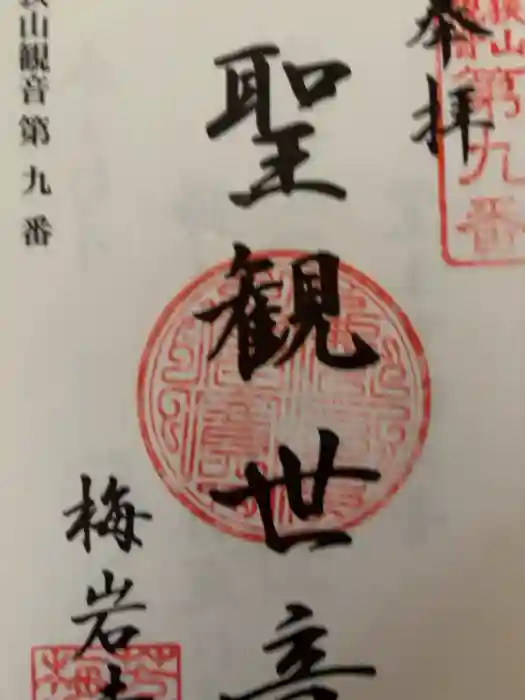 奉拝
山第九番
聖観世音
梅岩
山観音第九番